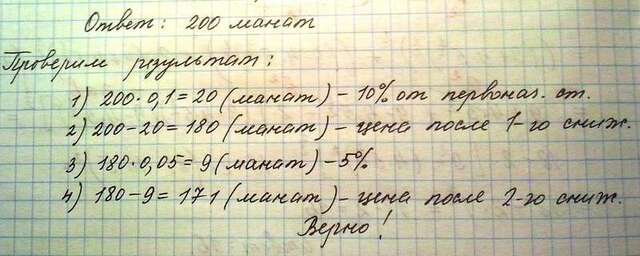 Ответ: 200 манат
Проверим результат:
1) 200·0,1=20 (манат) – 10% от первонач. ст.
2) 200–20=180 (манат) – цена после 1-го сниж.
3) 180·0,05=9 (манат) – 5%
4) 180–9=171 (манат) – цена после 2-го сниж.
Верно!